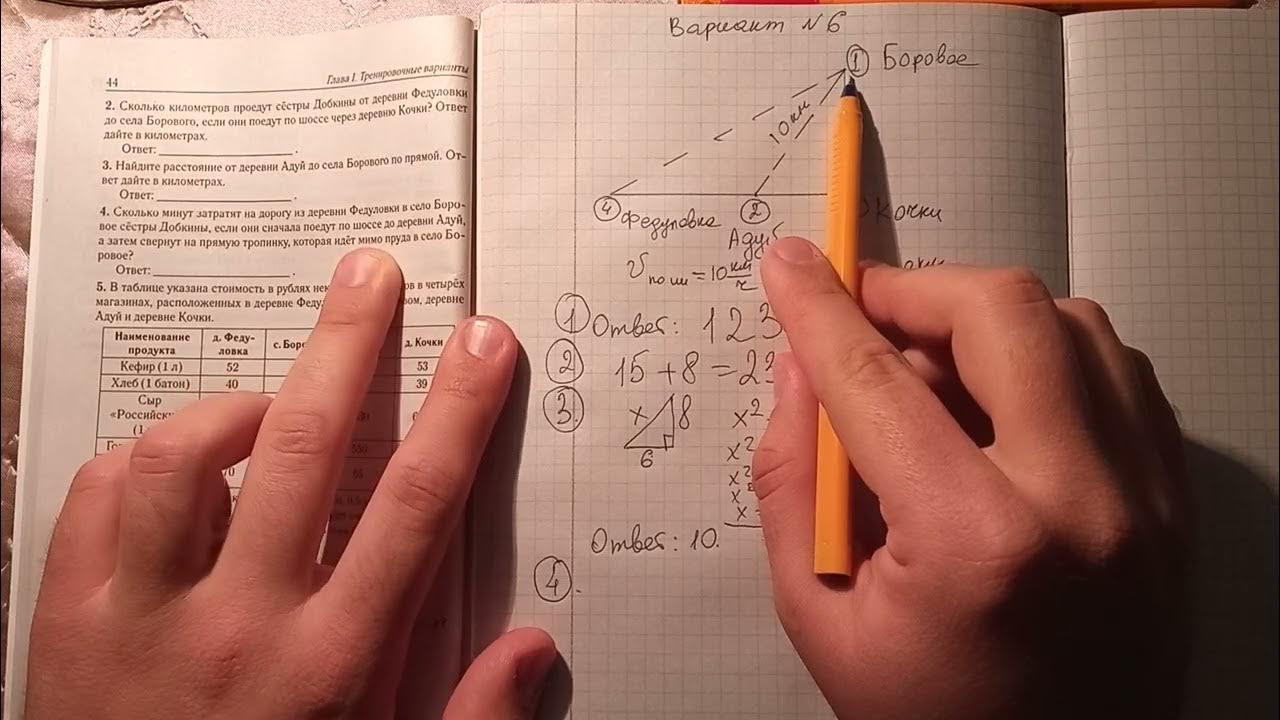 44
Глава I. Тренировочные варианты
2. Сколько километров проедут сёстры Добкины от деревни Федуловки
до села Борового, если они поедут по шоссе через деревню Кочки? Ответ
дайте в километрах.
Ответ: .
3. Найдите расстояние от деревни Адуй до села Борового по прямой. От-
вет дайте в километрах.
Ответ: .
4. Сколько минут затратят на дорогу из деревни Федуловки в село Боро-
вое сёстры Добкины, если они сначала поедут по шоссе до деревни Адуй,
а затем свернут на прямую тропинку, которая идёт мимо пруда в село Бо-
ровое?
Ответ: .
5. В таблице указана стоимость в рублях в четырёх
магазинах, расположенных в деревне деревне
Адуй и деревне Кочки.
Наименование продукта д. Феду-ловка д. Кочки
Кефир (1 л) 52 53
Хлеб (1 батон) 40 39
Сыр
550
65
Вариант №6
1 Боровое
10 км
4 Федуловка 2 Кочки
Адуй
V по ш = 10 км/ч
1 Ответ: 123
2 15 + 8 = 23
3. x 8 x²
6 x²
x²
x²
x
Ответ: 10.
4.